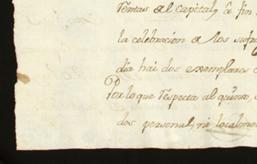 rentas del capital, â fin
la celebración de los sufra
dia hai dos exemplares
Por lo que respecta al quinto,
dos personal, ni localmen